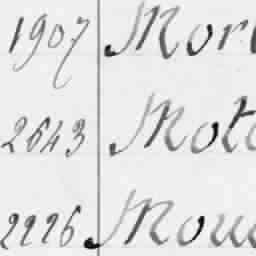 1907 Mor
2643 Mot
2226 Mou